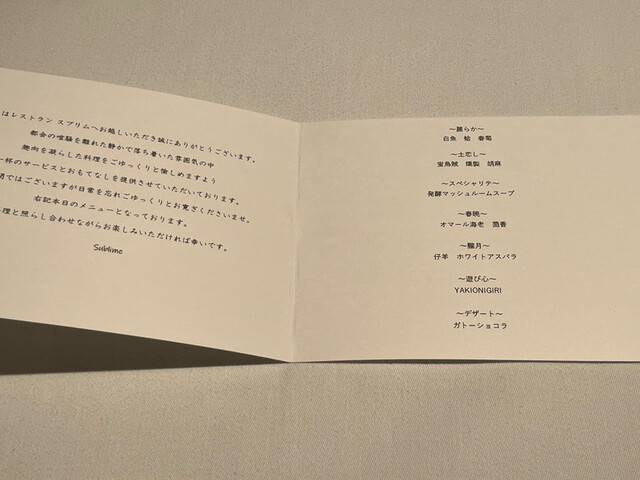 はレストラン スブリムへお越しいただき誠にありがとうございます。
都会の喧騒を離れた静かで落ち着いた雰囲気の中
趣向を凝らした料理をごゆっくりと愉しめますよう
一杯のサービスとおもてなしを提供させていただいております。
ではございますが日常を忘れごゆっくりとお寛ぎくださいませ。
右記本日のメニューとなっております。
理と照らし合わせながらお楽しみいただければ幸いです。
Sublime
～麗らか～
白魚 蛤 春菊
～土恋し～
宝鳥賊 燻製 胡麻
～スペシャリテ～
発酵マッシュルームスープ
～春暁～
オマール海老 茴香
～朧月～
仔羊 ホワイトアスパラ
～遊び心～
YAKIONIGIRI
～デザート～
ガトーショコラ